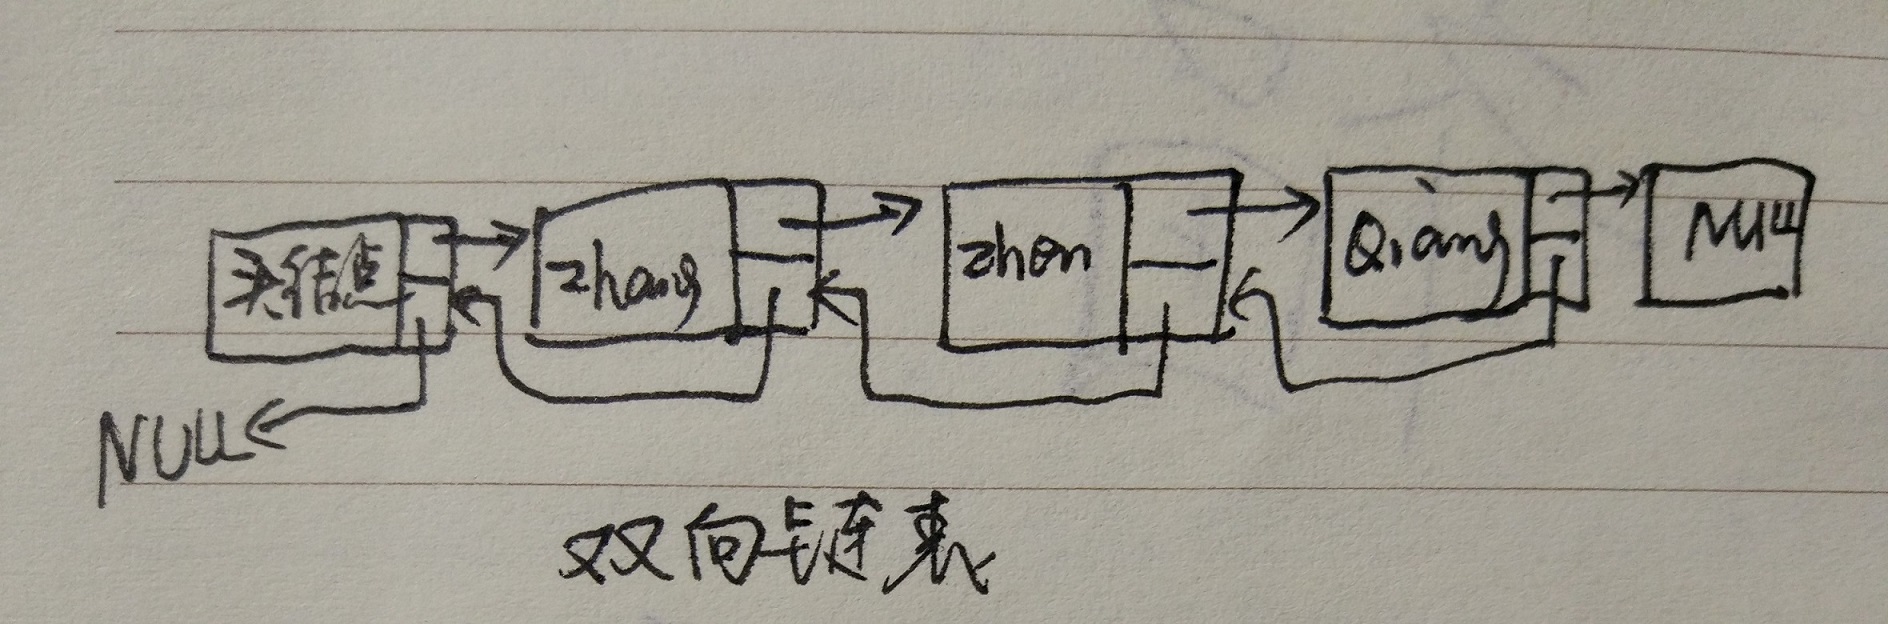 头结点 zhang zhen Qiang NULL
NULL
双向链表